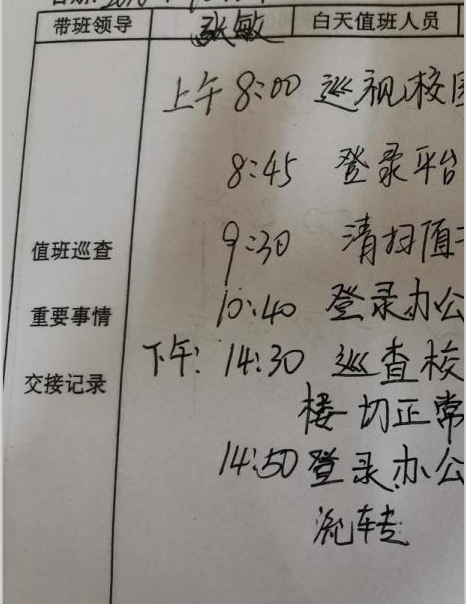 带班领导 张敏 白天值班人员
上午 8:00 巡视校
8:45 登录平台
值班巡查 9:30 清扫值
重要事情 10:40 登录办公
下午: 14:30 巡查校
交接记录
楼一切正常
14:50 登录办公
流转